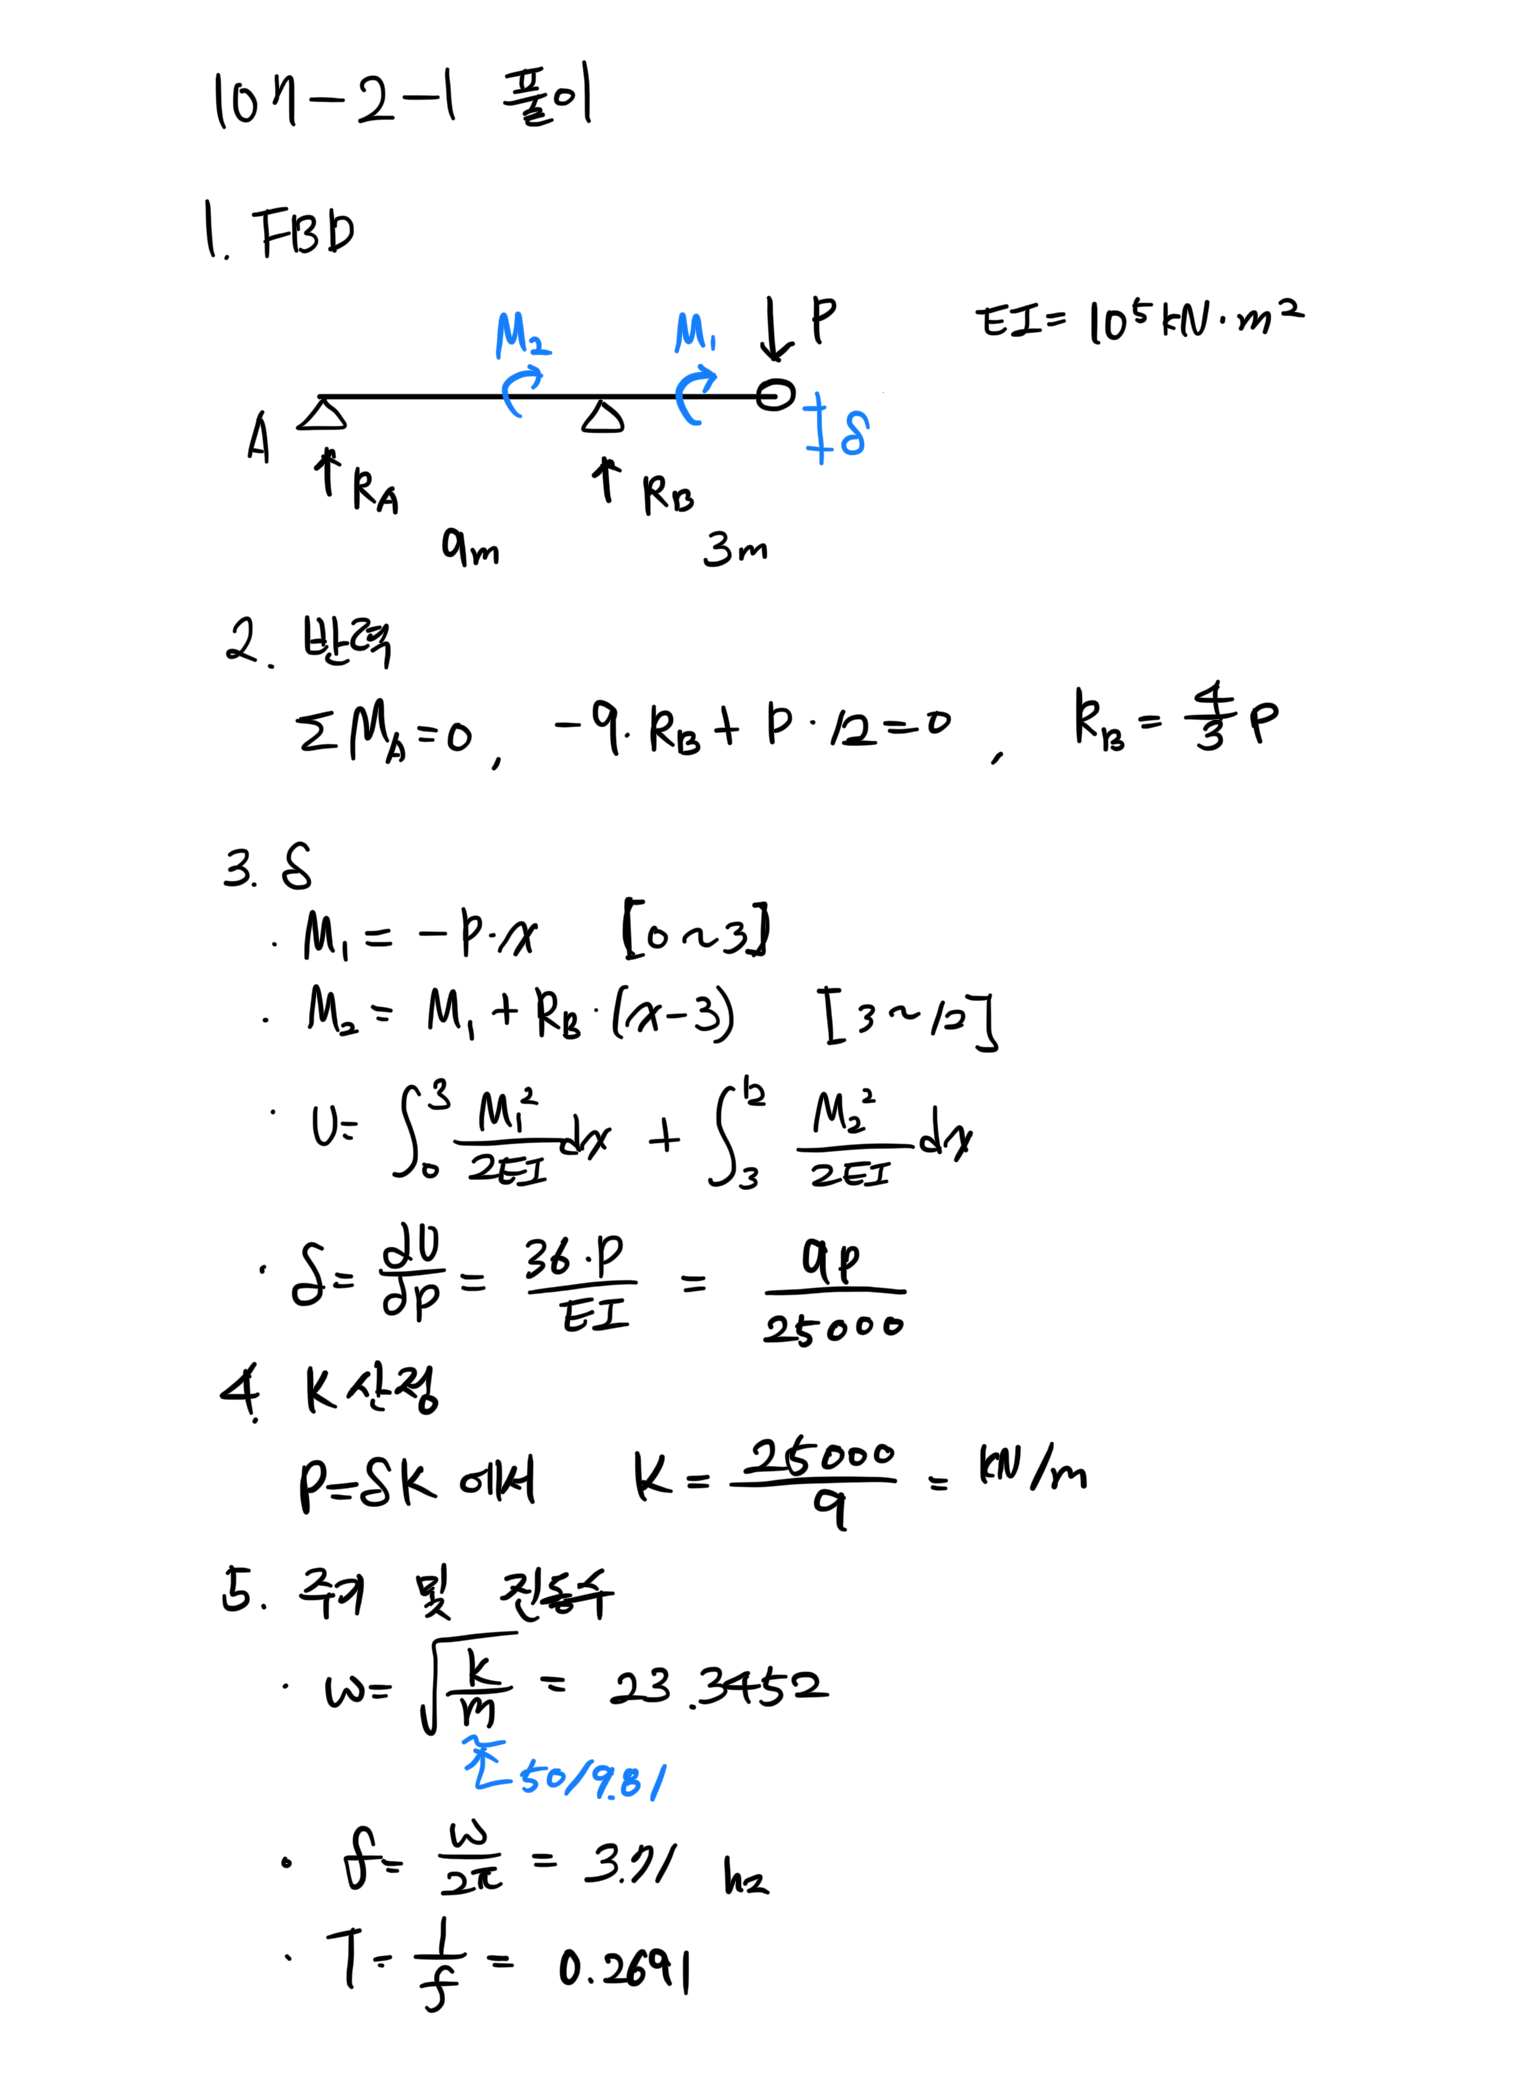 107-2-1 풀이
1. FBD
M₂ M₁ ↓ P EI = 10⁵ kN·m²
A δ
↑ R_A ↑ R_B
9m 3m
2. 반력
ΣM_A = 0, -9·R_B + P·12 = 0, R_B = 4/3 P
3. δ
· M₁ = -P·x [0~3]
· M₂ = M₁ + R_B·(x-3) [3~12]
· U = ∫₀³ M₁²/2EI dx + ∫₃¹² M₂²/2EI dx
· δ = dU/dP = 36·P/EI = 9P/25000
4. K 산정
P = δK 에서 K = 25000/9 = kN/m
5. 주기 및 진동수
· ω = √(k/m) = 23.3452
50/9.81
· f = ω/2π = 3.71 hz
· T = 1/f = 0.2691